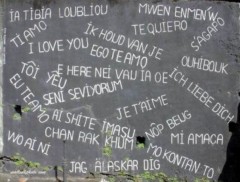 IA TIBIA LOUBLIOU
MWEN ENMEN W
TI AMO
IK HOUD VAN JE
TE QUIERO
SAGAPO
I LOVE YOU
EGO TE AMO
OUHIBOUK
TÔI YÊU
E HERE NEI VAU IA OE
ICH LIEBE DICH
EU TE AMO
SENI SEVIYORUM
JE T'AIME
AI SHITE IMASU
CHAN RAK KHUN
MI AMACA
WO AI NI
MO KONTAN TO
JAG ÄLASKAR DIG